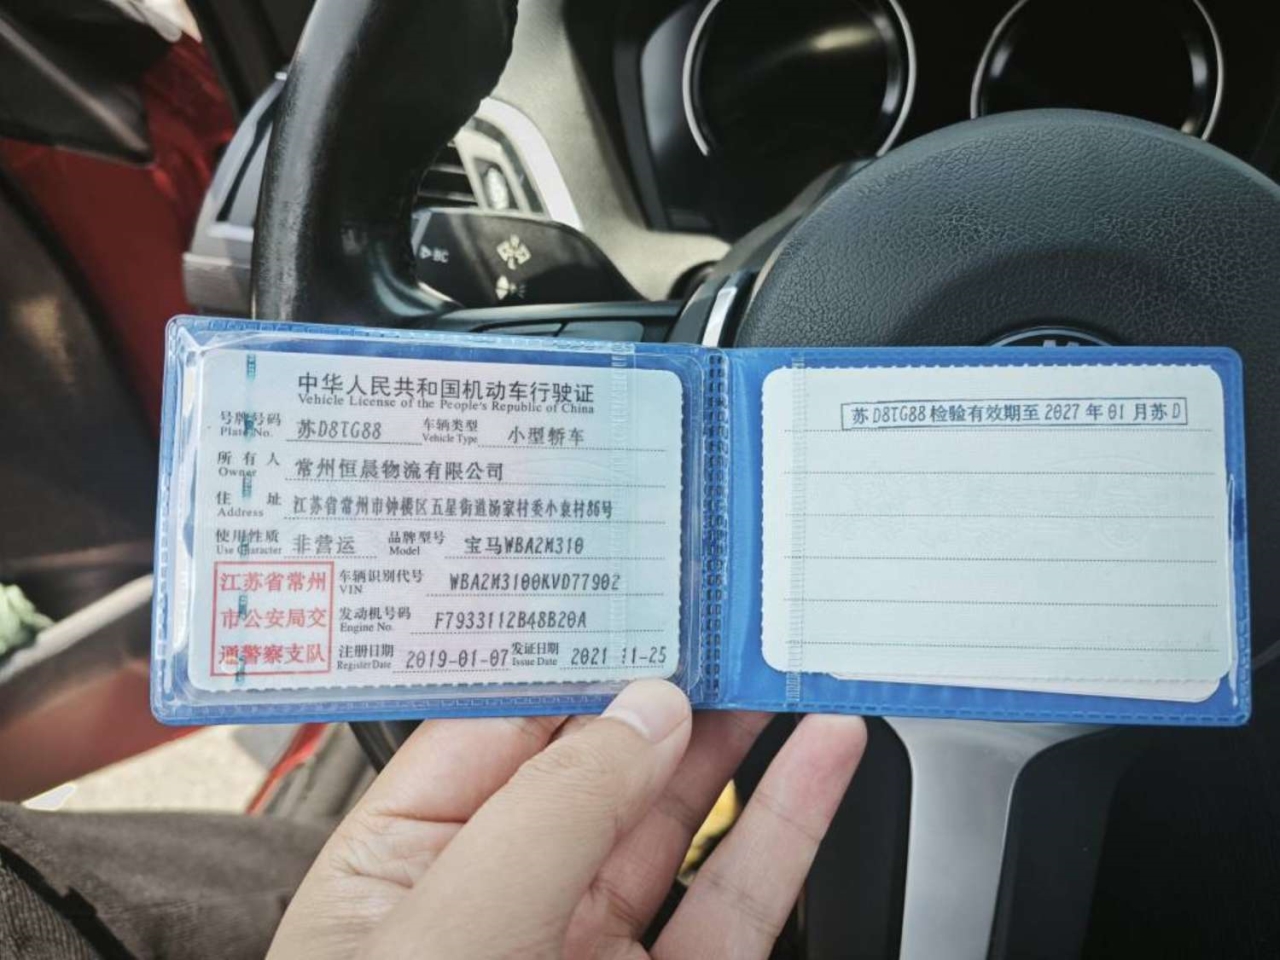 中华人民共和国机动车行驶证
Vehicle License of the People's Republic of China
号牌号码 Plate No. 苏D8TG88 车辆类型 Vehicle Type 小型轿车
所有人 Owner 常州恒晨物流有限公司
住址 Address 江苏省常州市钟楼区五星街道杨家村委小袁村86号
使用性质 Use Character 非营运 品牌型号 Model 宝马WBA2M310
车辆识别代号 VIN WBA2M3100KVD77902
发动机号码 Engine No. F7933112B48B20A
注册日期 Register Date 2019-01-07 发证日期 Issue Date 2021 11-25
江苏省常州
市公安局交
通警察支队
苏D8TG88检验有效期至2027年01月苏D
BC